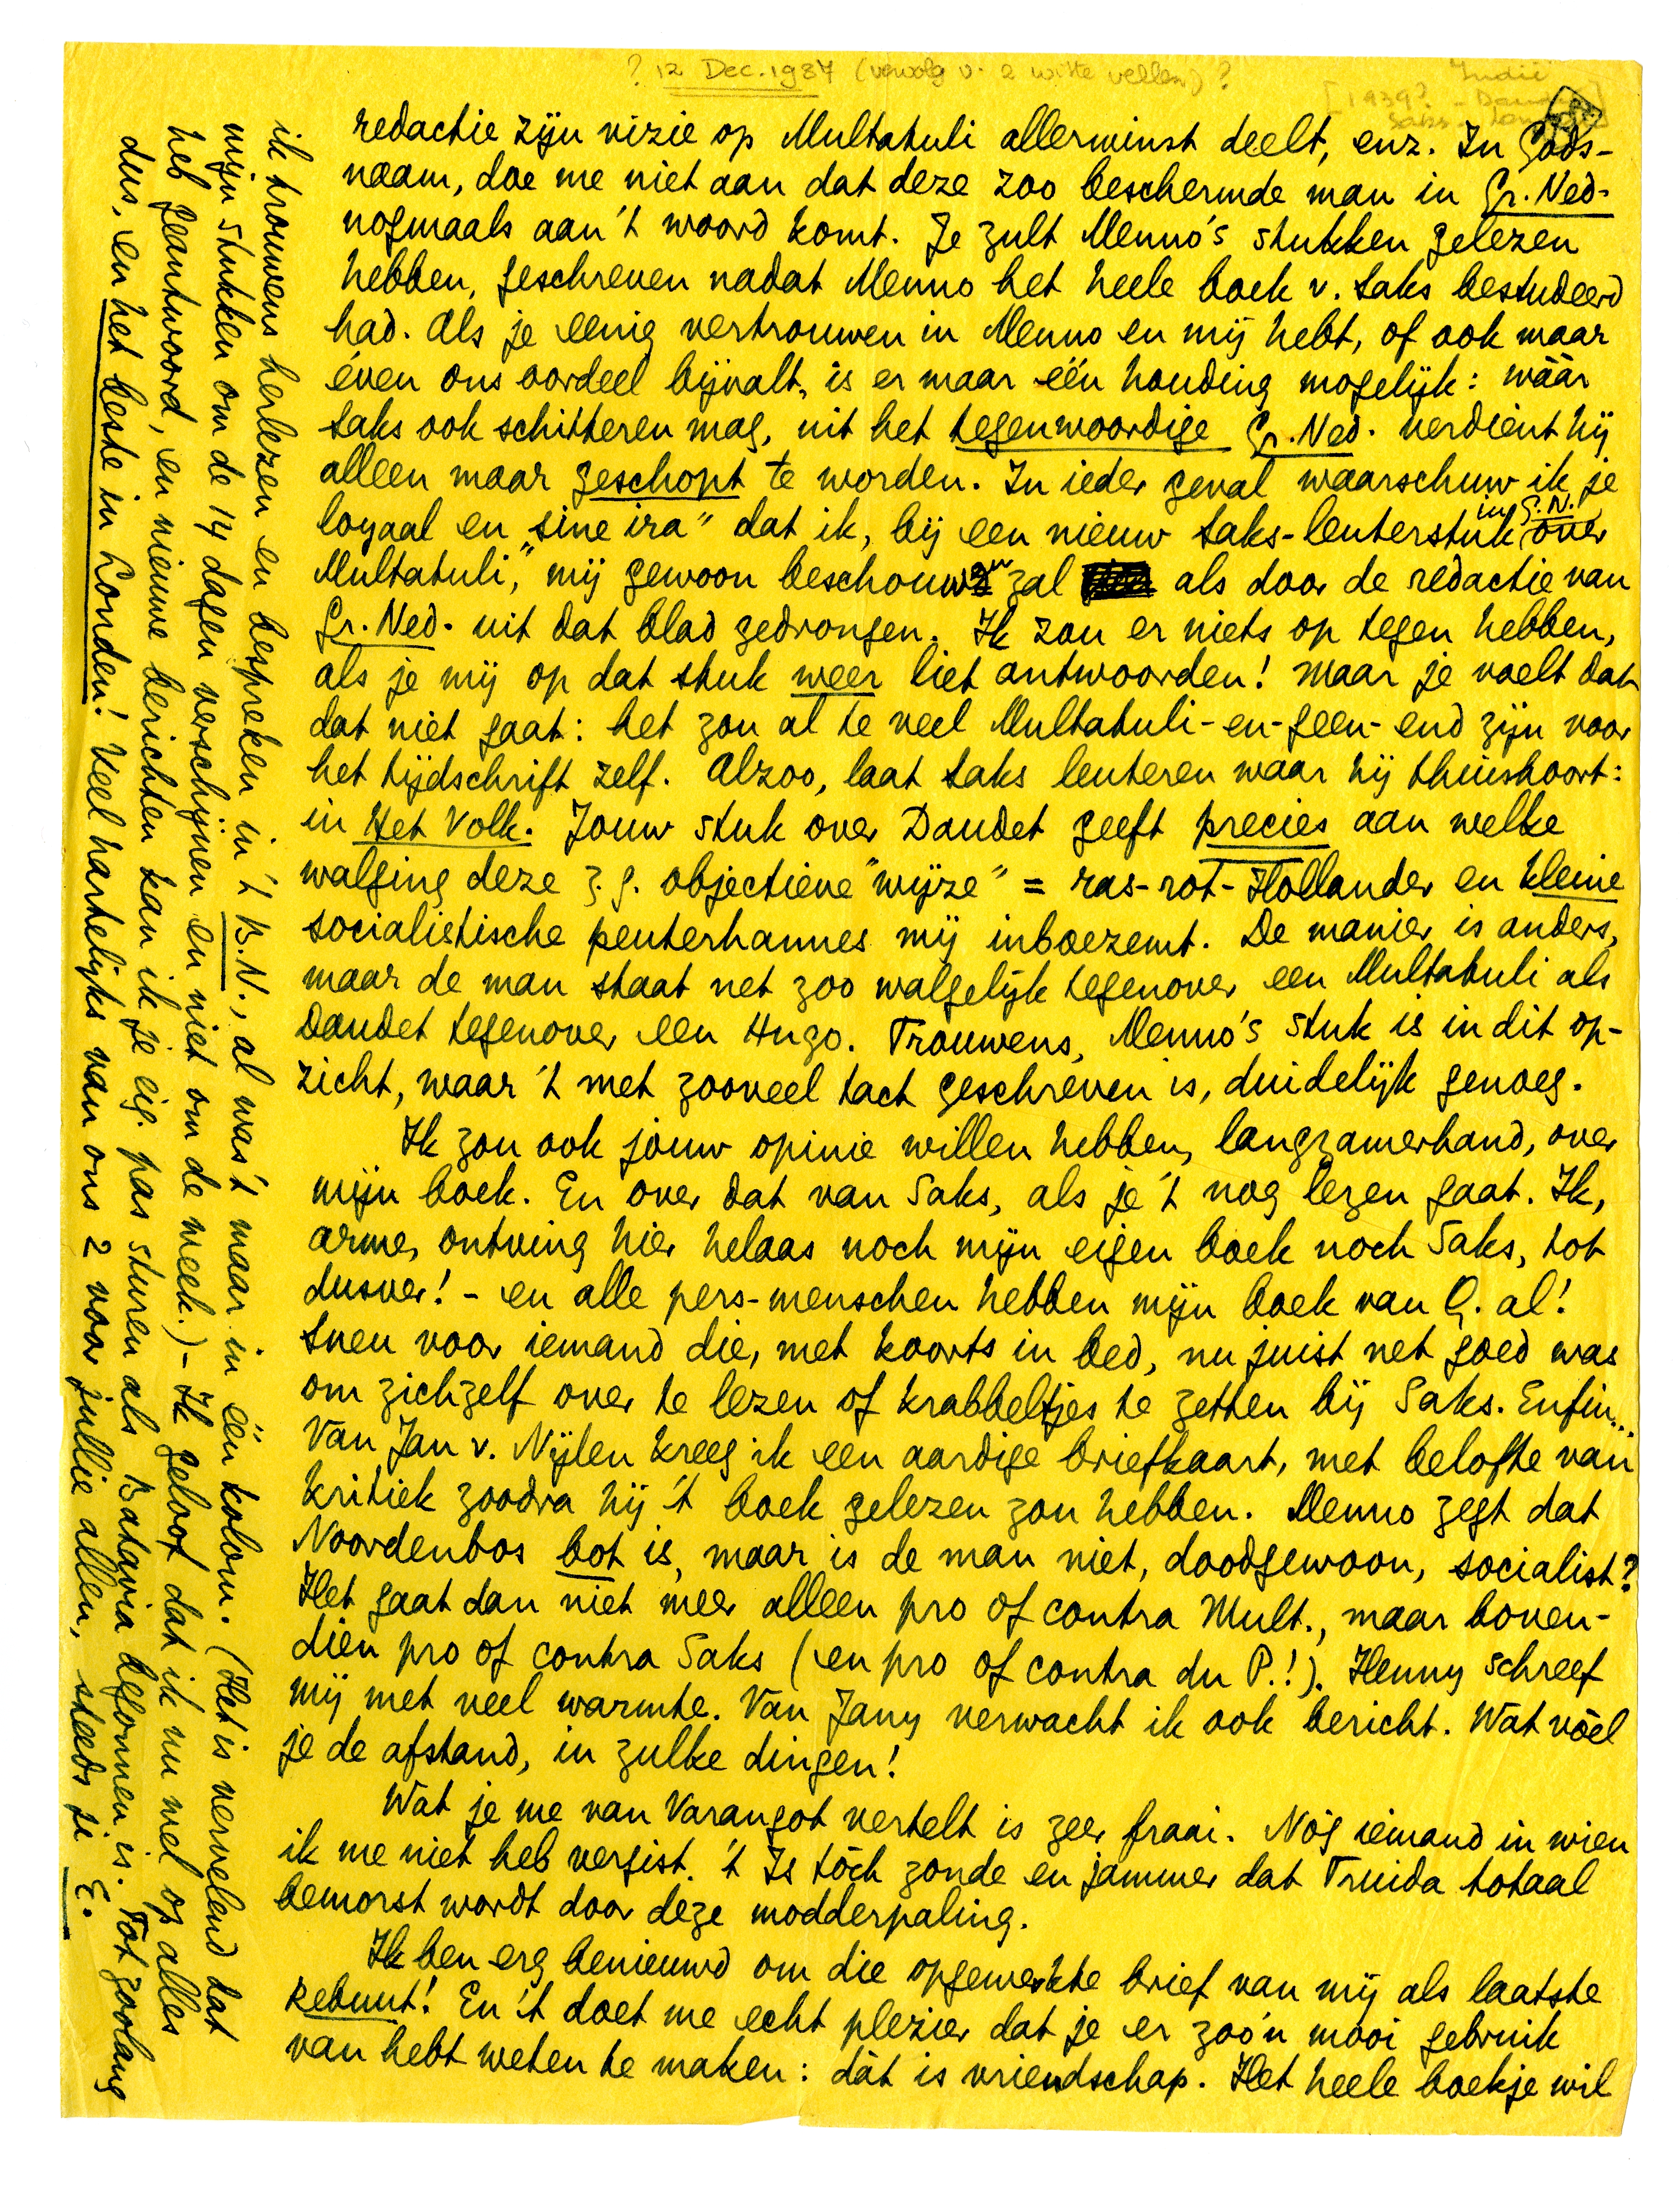 ? 12 Dec. 1937 (vervolg v. 2 witte vellen) ?
Indië
[1939? - Daudet]
Saks -
redactie zijn vizie op Multatuli allerminst deelt, enz. In Gods-
naam, doe me niet aan dat deze zoo beschermde man in Gr. Ned.
nogmaals aan 't woord komt. Je zult Menno's stukken gelezen
hebben, geschreven nadat Menno het heele boek v. Saks bestudeerd
had. Als je eenig vertrouwen in Menno en mij hebt, of ook maar
éven ons oordeel bijvalt, is er maar één houding mogelijk: wáár
Saks ook schitteren mag, uit het tegenwoordige Gr. Ned. verdient hij
alleen maar geschopt te worden. In ieder geval waarschuw ik je
loyaal en „sine ira" dat ik, bij een nieuw Saks-leuterstuk over in G.N.
Multatuli, mij gewoon beschouwen zal als door de redactie van
Gr. Ned. uit dat blad gedrongen. Ik zou er niets op tegen hebben,
als je mij op dat stuk weer liet antwoorden! Maar je voelt dat
dat niet gaat: het zou al te veel Multatuli-en-geen-end zijn voor
het tijdschrift zelf. Alzoo, laat Saks leuteren waar hij thuishoort:
in Het Volk. Jouw stuk over Daudet geeft precies aan welke
walging deze z.g. objectieve "wijze" = ras-rot-Hollander en kleine
socialistische peuterhannes mij inboezemt. De manier is anders,
maar de man staat net zoo walgelijk tegenover een Multatuli als
Daudet tegenover een Hugo. Trouwens, Menno's stuk is in dit op-
zicht, waar 't met zooveel tact geschreven is, duidelijk genoeg.
Ik zou ook jouw opinie willen hebben, langzamerhand, over
mijn boek. En over dat van Saks, als je 't nog lezen gaat. Ik,
arme, ontving hier helaas noch mijn eigen boek noch Saks, tot
dusver! - en alle pers-menschen hebben mijn boek van Q. al!
Sneu voor iemand die, met koorts in bed, nu juist net goed was
om zichzelf over te lezen of krabbeltjes te zetten bij Saks. Enfin...
Van Jan v. Nijlen kreeg ik een aardige briefkaart, met belofte van
kritiek zoodra hij 't boek gelezen zou hebben. Menno zegt dat
Noordenbos bot is, maar is de man niet, doodgewoon, socialist?
Het gaat dan niet meer alleen pro of contra Mult., maar boven-
dien pro of contra Saks (en pro of contra du P.!). Henny schreef
mij met veel warmte. Van Jany verwacht ik ook bericht. Wat vóel
je de afstand, in zulke dingen!
Wat je me van Varangot vertelt is zeer fraai. Nóg iemand in wien
ik me niet heb vergist. 't Is tóch zonde en jammer dat Truida totaal
bemorst wordt door deze modderpaling.
Ik ben erg benieuwd om die opgewerkte brief van mij als laatste
rebuut! En 't doet me echt plezier dat je er zoo'n mooi gebruik
van hebt weten te maken: dàt is vriendschap. Het heele boekje wil
ik trouwens herlezen en bespreken in 't B.N., al was 't maar in één kolom. (Het is vervelend dat
mijn stukken om de 14 dagen verschijnen en niet om de week.) - Ik geloof dat ik nu wel op alles
heb geantwoord, en nieuwe berichten kan ik je eig. pas sturen als Batavia begonnen is. Tot zoolang
dus, en het beste in Londen! Veel hartelijks van ons 2 voor jullie allen, steeds je E.